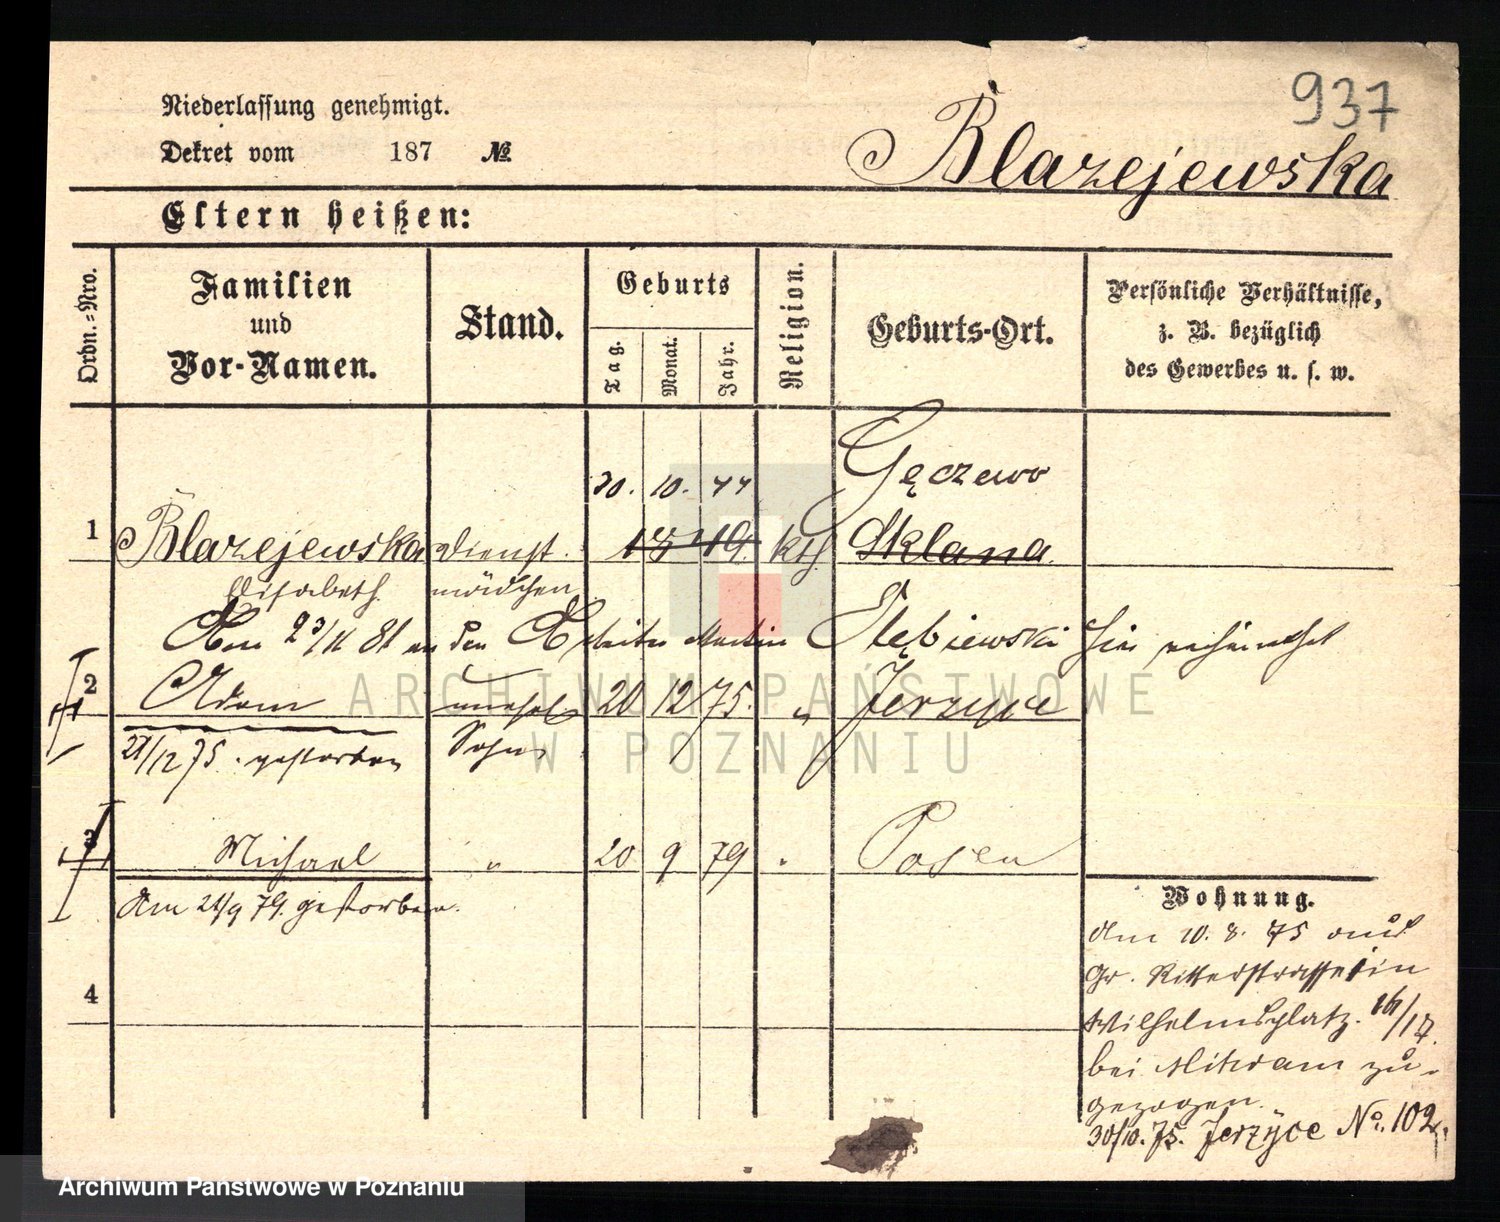 937
Niederlassung genehmigt.
Dekret vom 187 №
Blazejewska
Eltern heißen:
Ordn.-Nro.
Familien und Vor-Namen.
Stand.
Geburts
Tag.
Monat.
Jahr.
Religion.
Geburts-Ort.
Persönliche Verhältnisse,
z. B. bezüglich
des Gewerbes u. s. w.
30. 10. 44 Gęczewo
1 Blazejewska Dienst- 49. kth. Sklana
Elisabeth mädchen
Am 23/11 81 an den Arbeiter Martin hier verheirathet
2 Adam unehel. 20 12 75. " Jerzyce
21/12 75. gestorben Sohn
3 Michael " 20 9 79 " Posen
Am 21/9 79. gestorben.
Wohnung.
Am 10. 8. 75 aus
Gr. Ritterstrasse in
Wilhelmsplatz. 16/17.
bei zu-
gezogen.
30/10. 75. Jerzyce No. 102.
4
ARCHIWUM PAŃSTWOWE
W POZNANIU
Archiwum Państwowe w Poznaniu